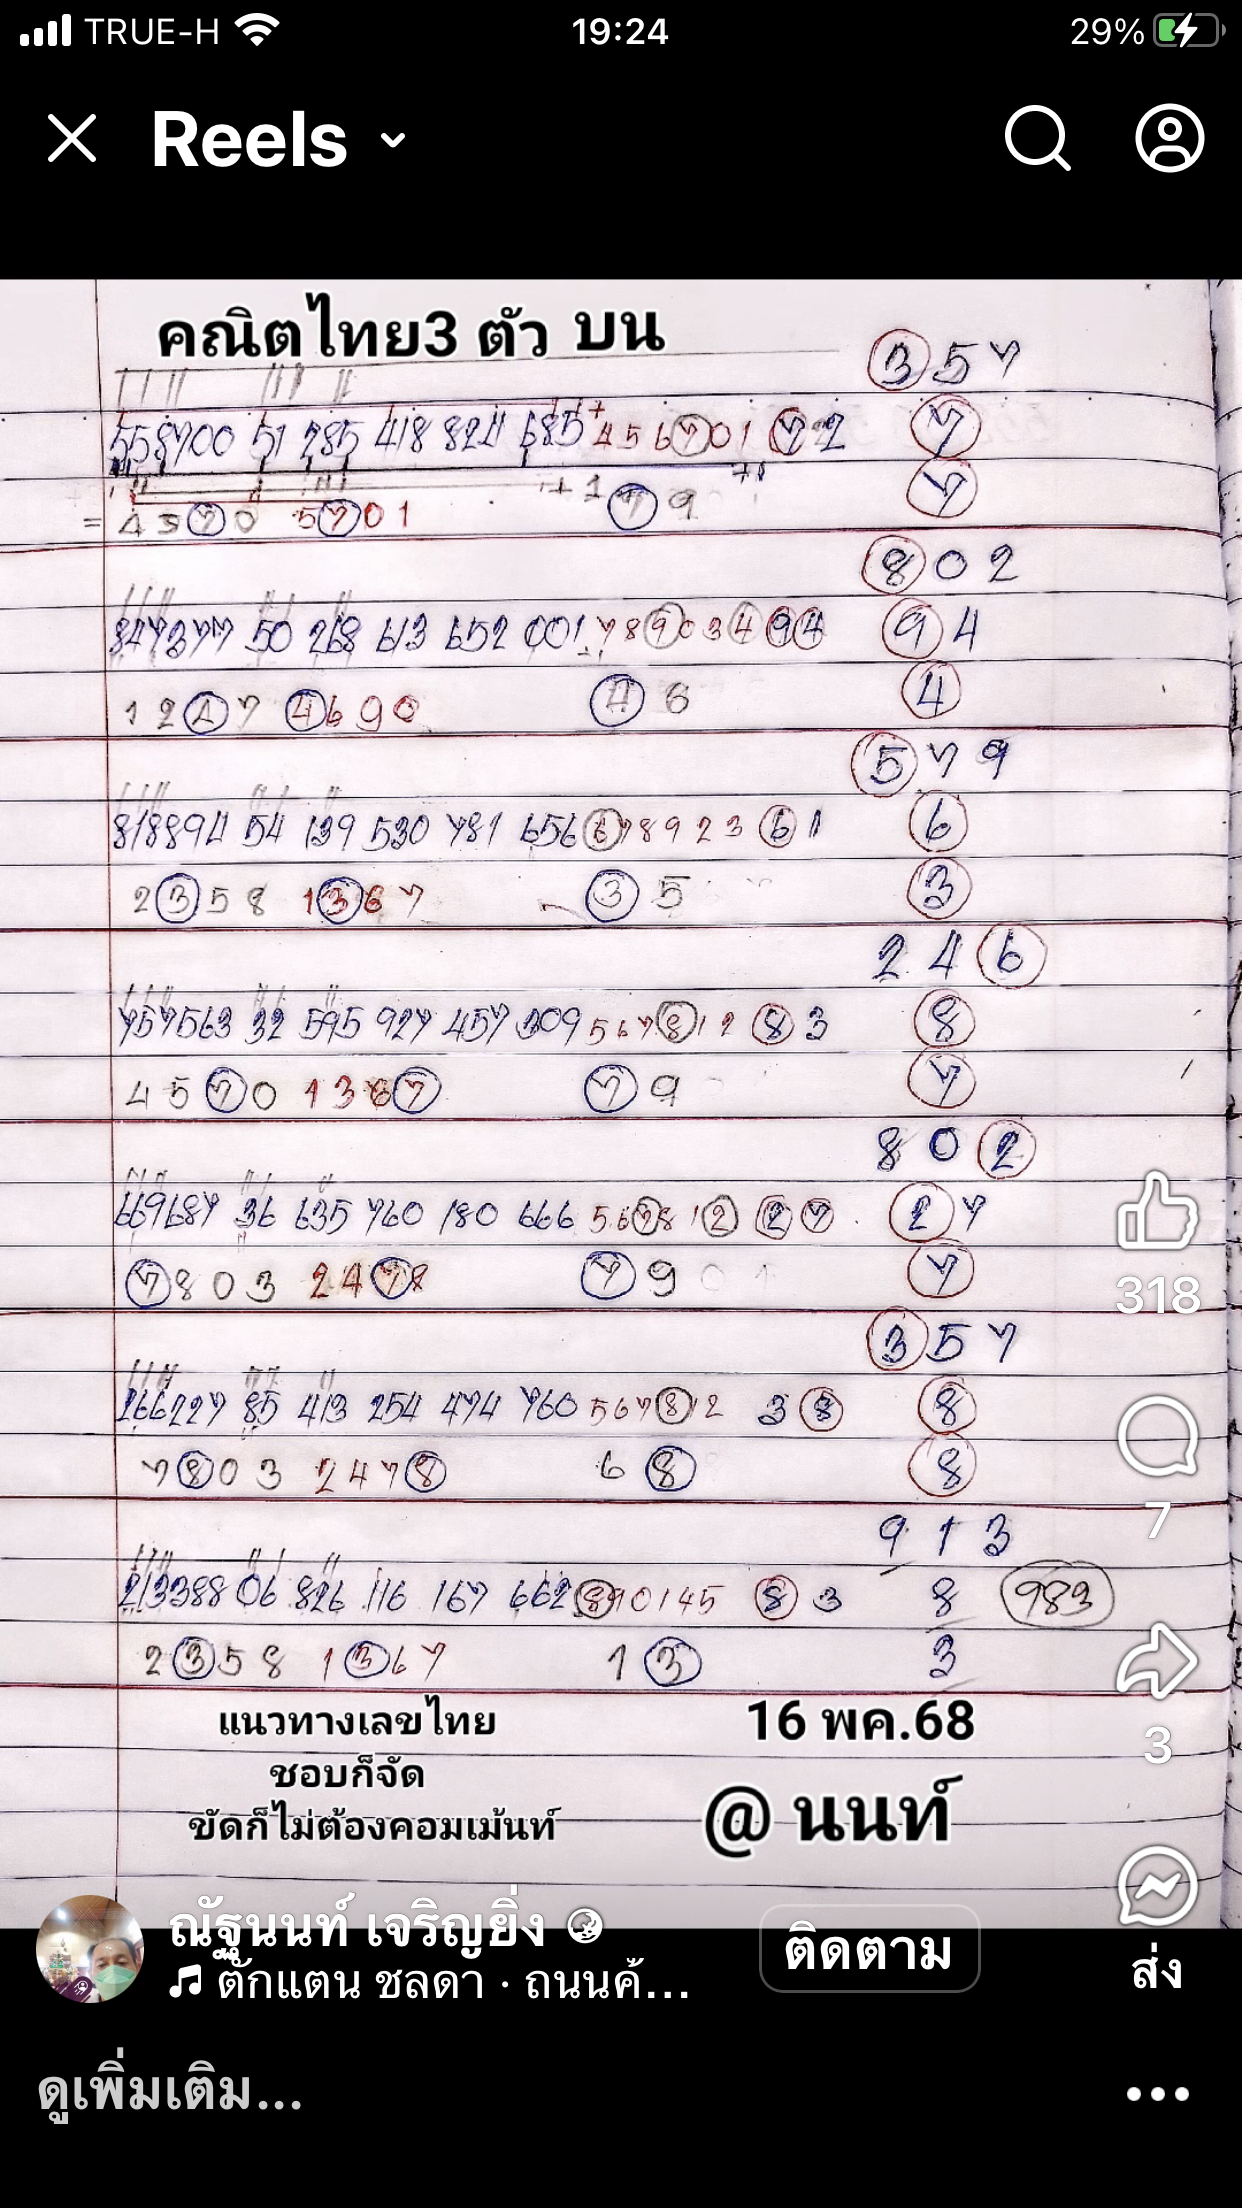 TRUE-H 19:24 29%
Reels
คณิตไทย3 ตัว บน
3 5 7
558700 51 285 418 824 685 + 4 5 6 7 0 1 7 2 7
+ 1 7 9 7
= 4 5 7 0 5 7 0 1
8 0 2
847377 50 268 613 652 001 7 8 9 0 3 4 9 4 9 4
1 2 4 7 4 6 9 0 4 6 4
5 7 9
818894 54 139 530 781 656 6 7 8 9 2 3 6 1 6
2 3 5 8 1 3 6 7 3 5 3
2 4 6
757563 32 595 927 457 309 5 6 7 8 1 2 8 3 8
4 5 7 0 1 3 6 7 7 9 7
8 0 2
669687 36 635 760 180 666 5 6 7 8 1 2 2 7 2 7
7 8 0 3 2 4 7 8 7 9 7
318
3 5 7
266227 85 413 254 474 760 5 6 7 8 1 2 3 8 8
7 8 0 3 2 4 7 8 6 8 8
7
9 1 3
213388 06 826 116 167 662 8 9 0 1 4 5 8 3 8 983
2 3 5 8 1 3 6 7 1 3 3
แนวทางเลขไทย 16 พค.68
ชอบก็จัด 3
ขัดก็ไม่ต้องคอมเม้นท์ @ นนท์
ณัฐนนท์ เจริญยิ่ง ติดตาม
ตั๊กแตน ชลดา · ถนนค้... ส่ง
ดูเพิ่มเติม...